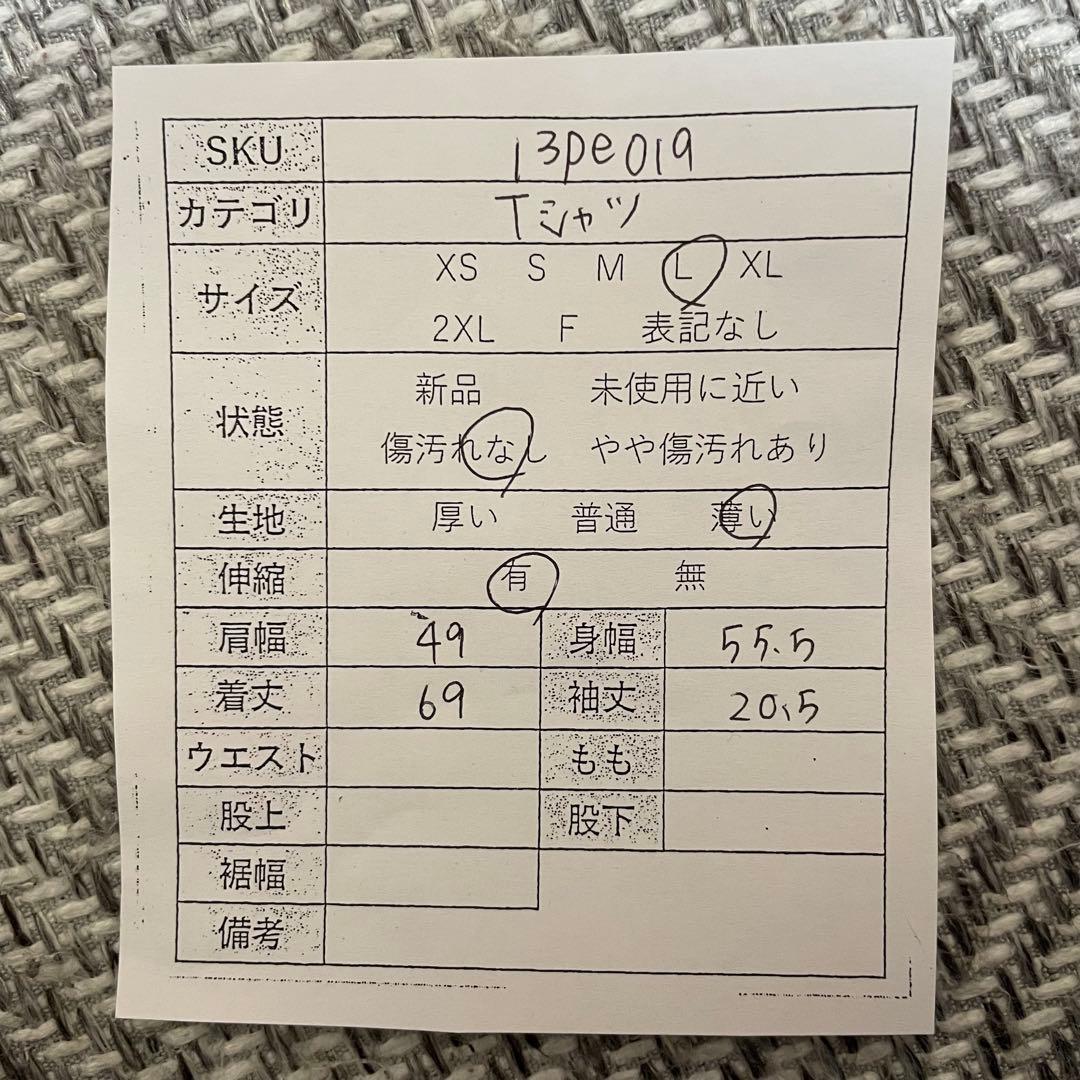 SKU 13pe019
カテゴリ Tシャツ
サイズ XS S M L XL
2XL F 表記なし
状態 新品 未使用に近い
傷汚れなし やや傷汚れあり
生地 厚い 普通 薄い
伸縮 有 無
肩幅 49 身幅 55.5
着丈 69 袖丈 20.5
ウエスト もも
股上 股下
裾幅
備考